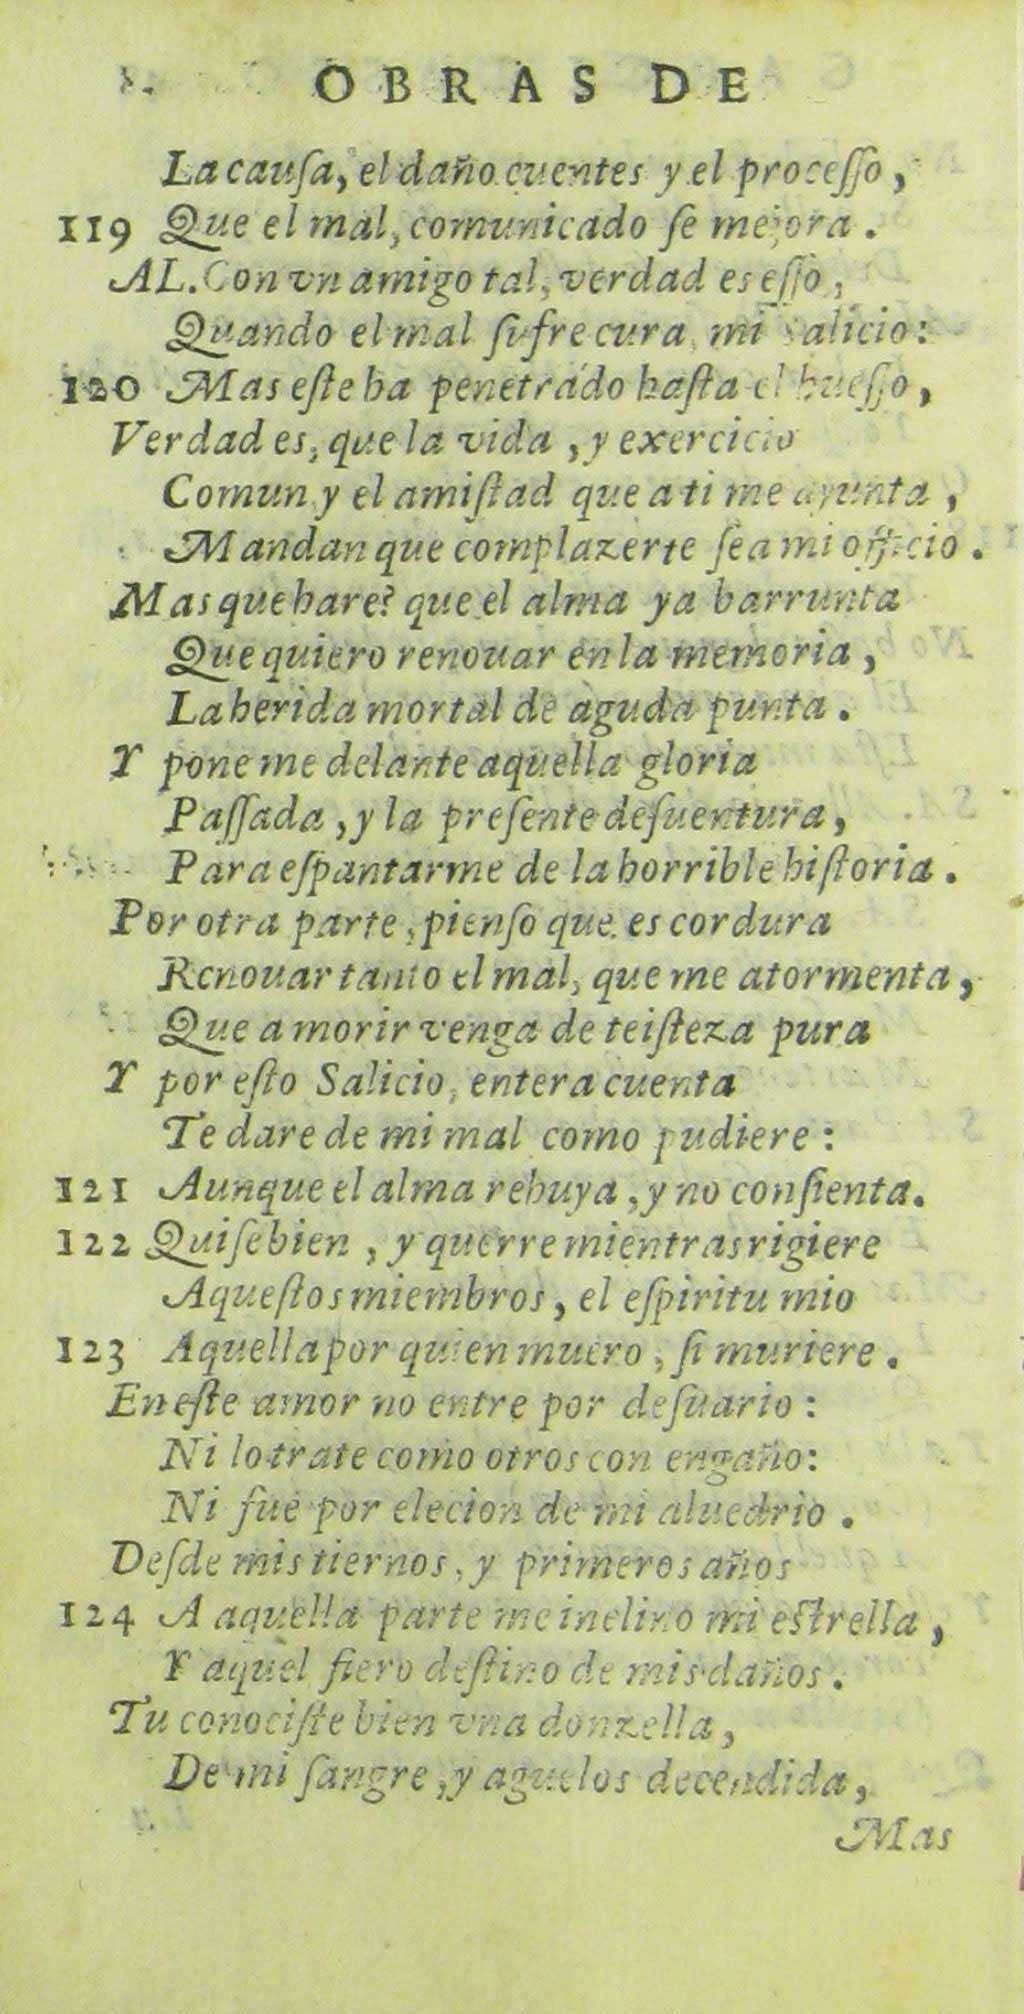 OBRAS DE
La causa, el daño cuentes y el processo,
119 Que el mal, comunicado se mejora.
AL. Con vn amigo tal, verdad es esso,
Quando el mal sufre cura, mi Salicio:
120 Mas este ha penetrado hasta el huesso,
Verdad es, que la vida, y exercicio
Comun y el amistad que a ti me ayunta,
Mandan que complazerte sea mi officio.
Mas que hare? que el alma ya barrunta
Que quiero renouar en la memoria,
La herida mortal de aguda punta.
Y pone me delante aquella gloria
Passada, y la presente desuentura,
Para espantarme de la horrible historia.
Por otra parte, pienso que es cordura
Renouar tanto el mal, que me atormenta,
Que a morir venga de teisteza pura
Y por esto Salicio, entera cuenta
Te dare de mi mal como pudiere:
121 Aunque el alma rehuya, y no consienta.
122 Quise bien, y querre mientras rigiere
Aquestos miembros, el espiritu mio
123 Aquella por quien muero, si muriere.
En este amor no entre por desuario:
Ni lo trate como otros con engaño:
Ni fue por elecion de mi aluedrio.
Desde mis tiernos, y primeros años
124 A aquella parte me inclino mi estrella,
Y aquel fiero destino de mis daños.
Tu conociste bien vna donzella,
De mi sangre, y aguelos decendida,
Mas